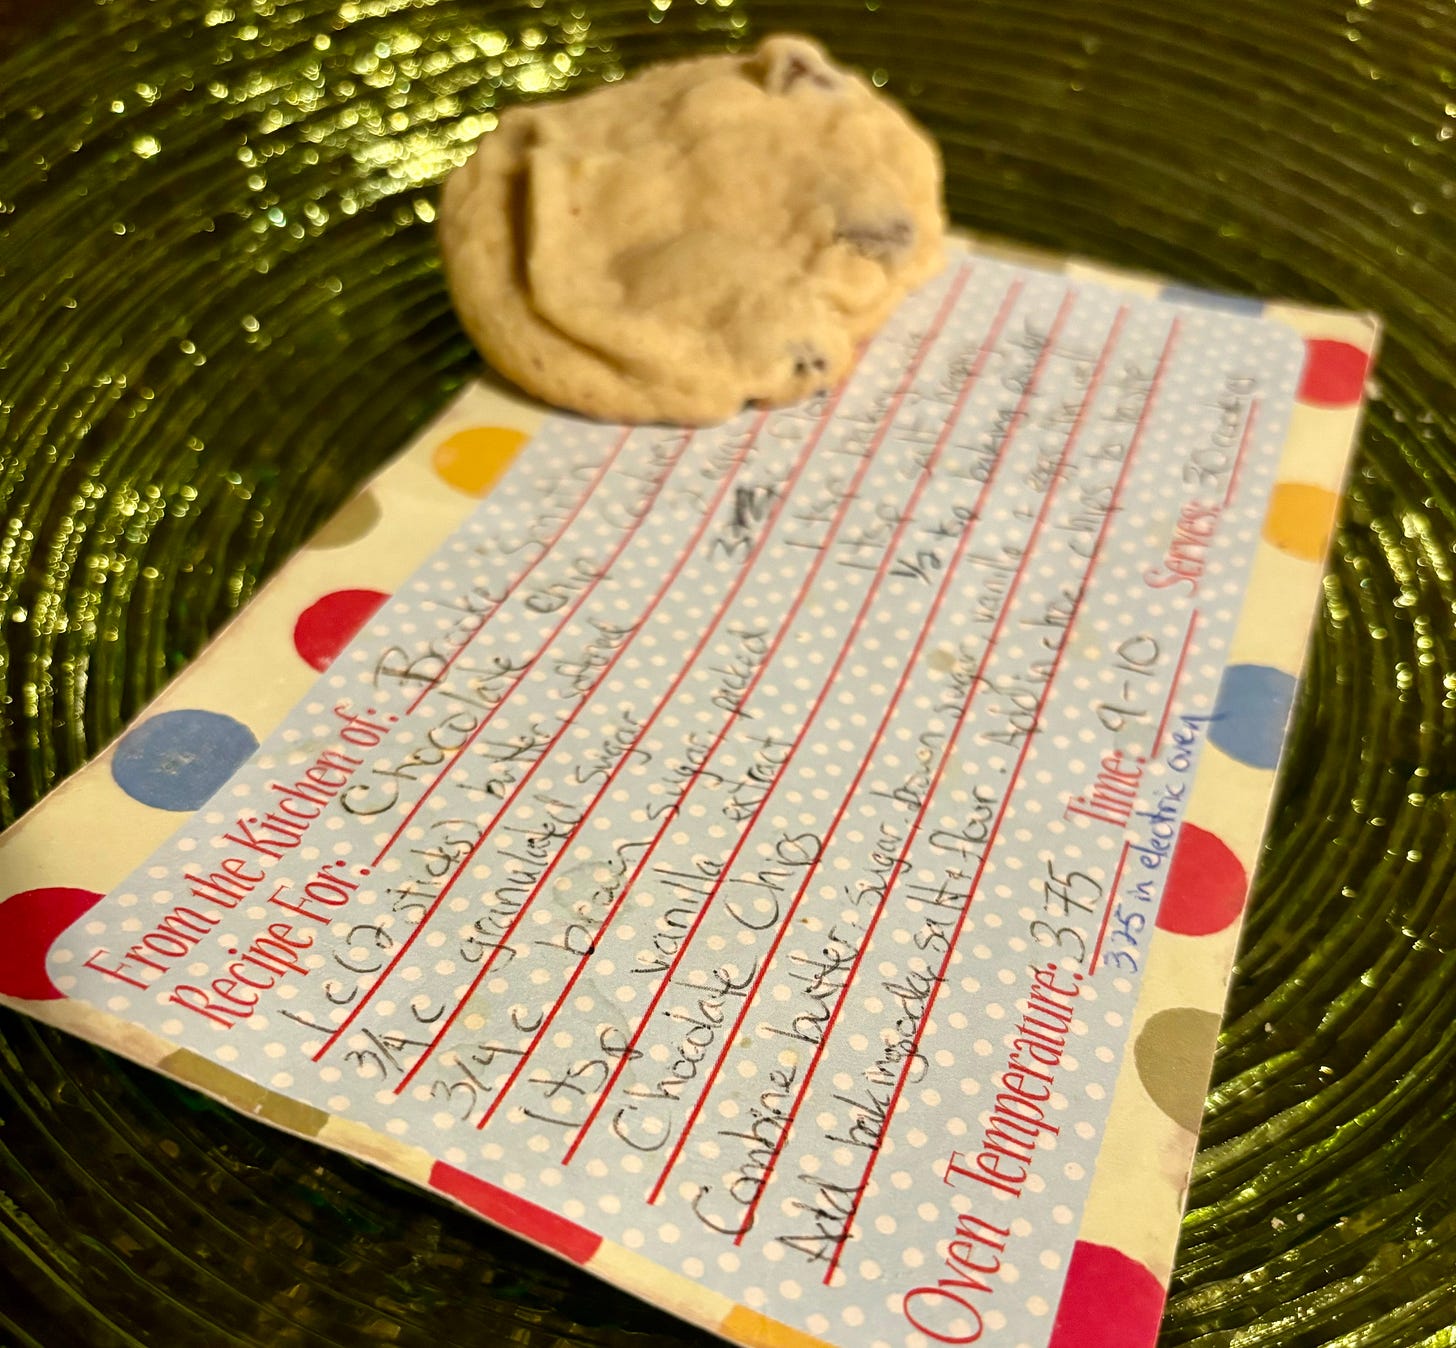 From the Kitchen of: Brooke Smith
Recipe For: Chocolate Chip Cookies
1 c (2 sticks) butter, softened 2 eggs
3/4 c granulated sugar
3/4 c brown sugar, packed 1 tsp baking
1 tsp vanilla extract 1 tsp salt
Chocolate Chips 1/2 tsp baking powder
Combine butter, sugar, brown sugar, vanilla + eggs
Add baking soda, salt + flour. Add in choc. chips to taste
Oven Temperature: 375 Time: 9-10 Serves: 30 cookies
325 in electric oven